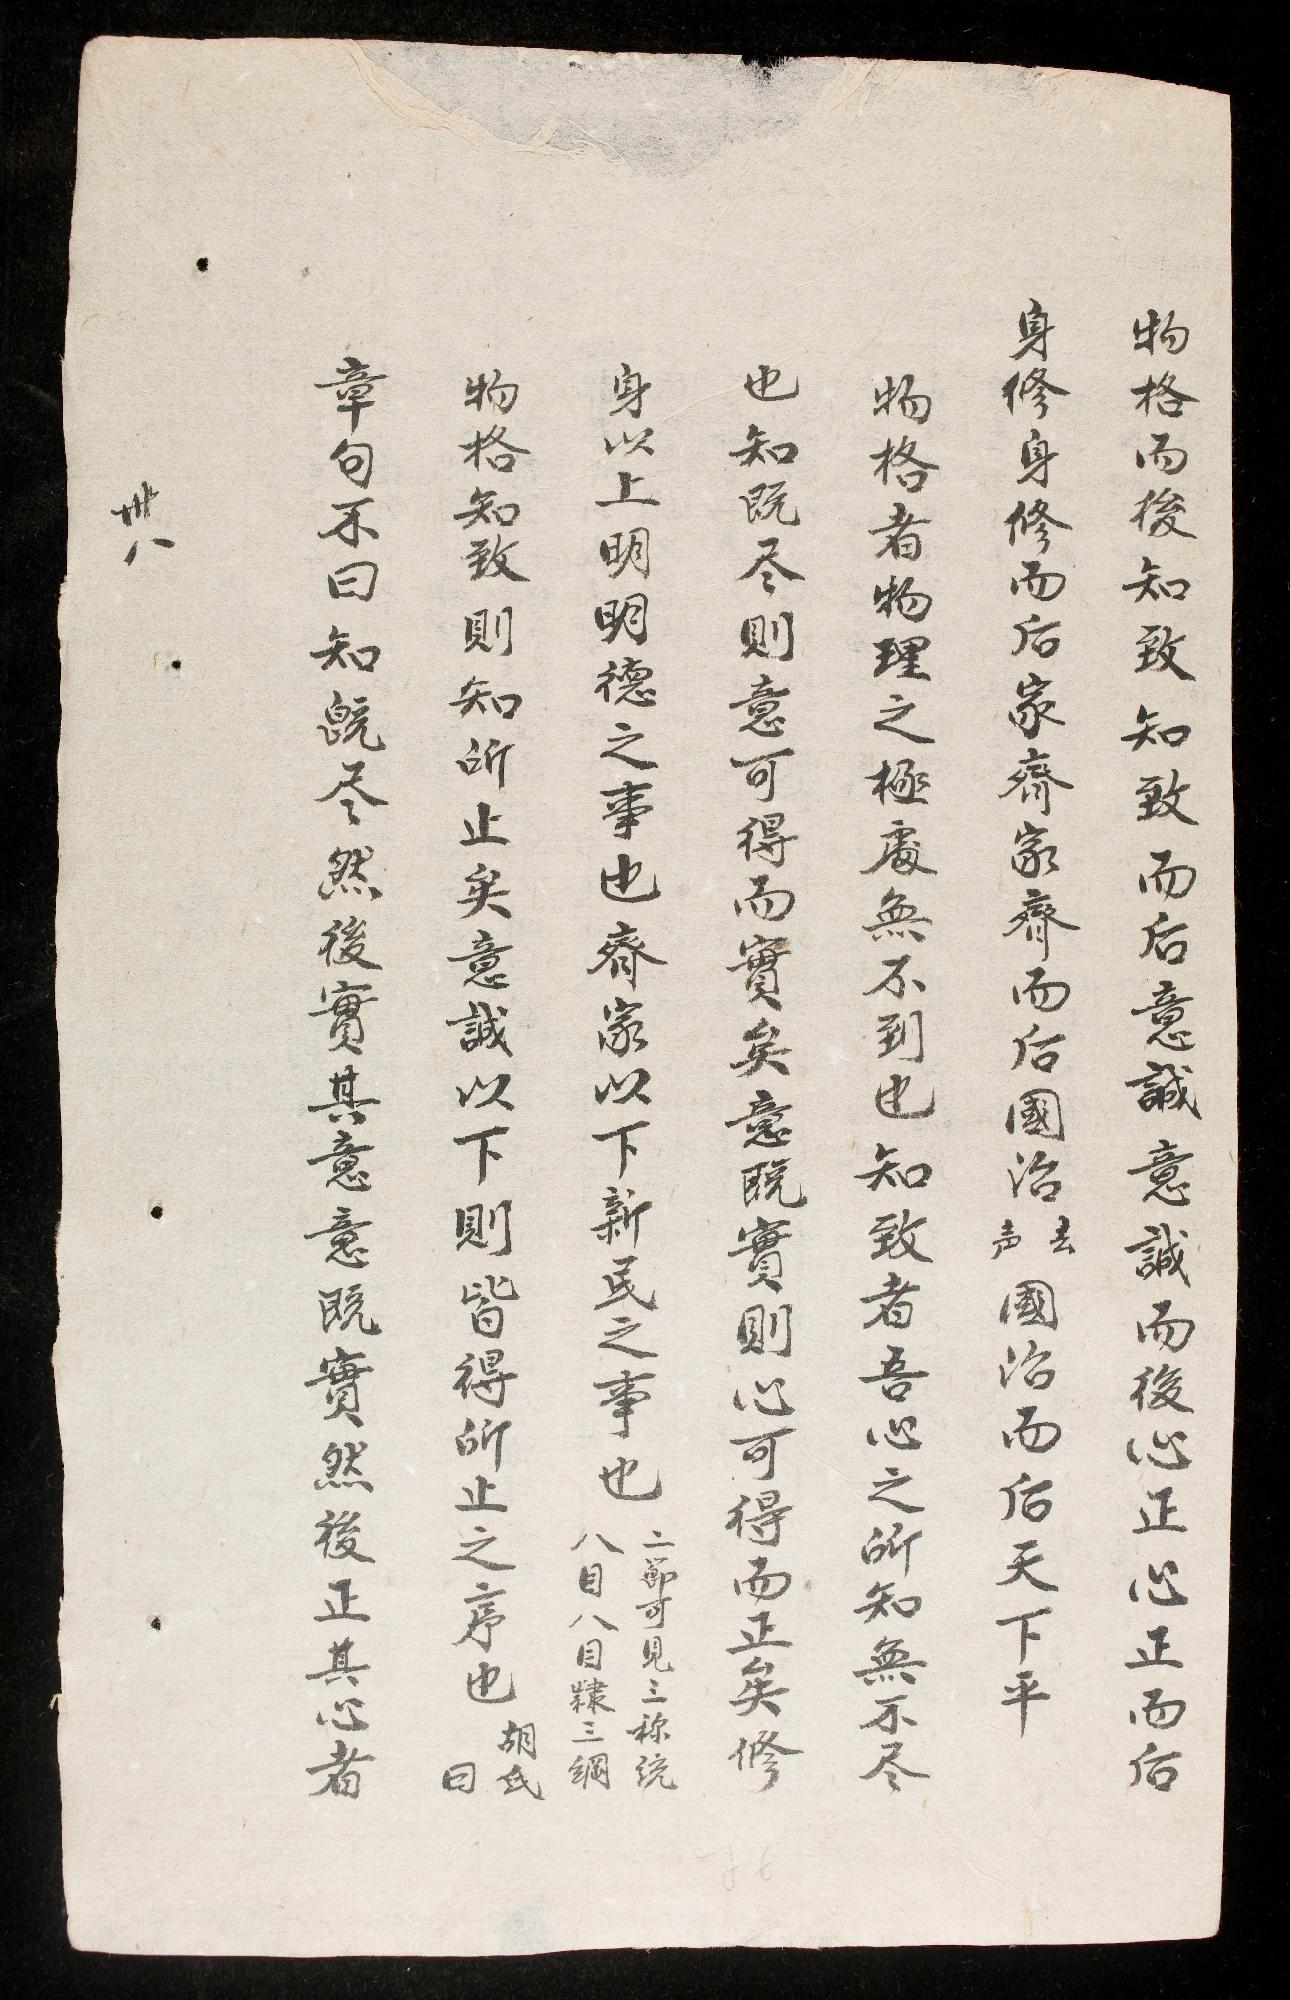 物格而後知致知致而后意誠意誠而後心正心正而后
身修身修而后家齊家齊而后國治
去
声
國治而后天下平
物格者物理之極處無不到也知致者吾心之所知無不尽
也知既尽則意可得而實矣意既實則心可得而正矣修
身以上明明德之事也齊家以下新民之事也
二節可見三称統
八目八目隸三綱
物格知致則知所止矣意誠以下則皆得所止之序也
胡氏
曰
章句不曰知既尽然後實其意意既實然後正其心者
卌八